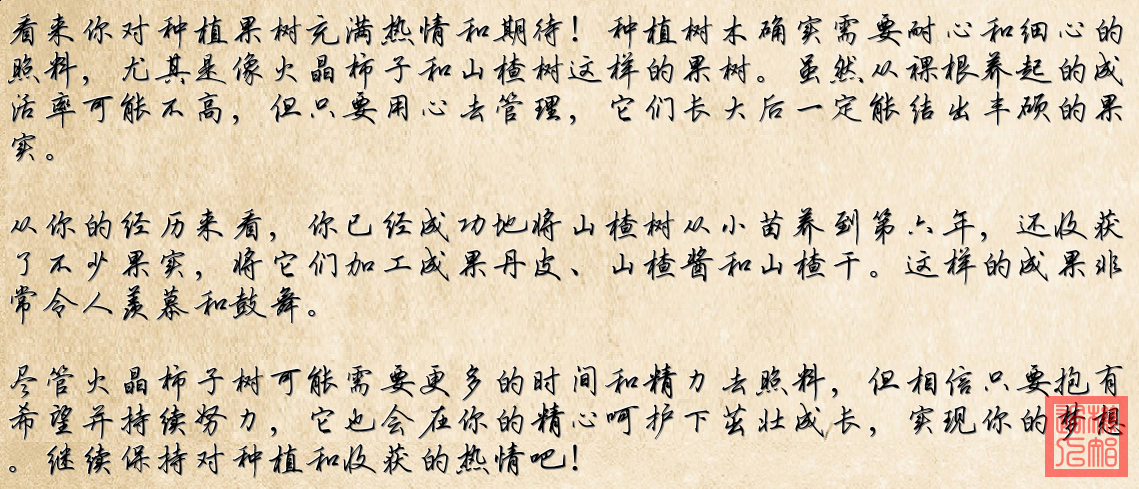 看来你对种植果树充满热情和期待！种植树木确实需要耐心和细心的
照料，尤其是像火晶柿子和山楂树这样的果树。虽然从裸根养起的成
活率可能不高，但只要用心去管理，它们长大后一定能结出丰硕的果
实。
从你的经历来看，你已经成功地将山楂树从小苗养到第六年，还收获
了不少果实，将它们加工成果丹皮、山楂酱和山楂干。这样的成果非
常令人羡慕和鼓舞。
尽管火晶柿子树可能需要更多的时间和精力去照料，但相信只要抱有
希望并持续努力，它也会在你的精心呵护下茁壮成长，实现你的梦想
。继续保持对种植和收获的热情吧！